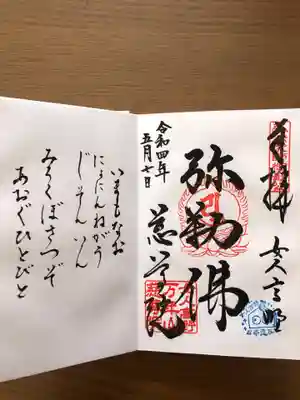 奉拝
女人高野
弥勒佛
慈尊院
令和四年
五月七日
いまもなお
にょにんねがう
じそんいん
みろくぼさつぞ
あおぐひとびと